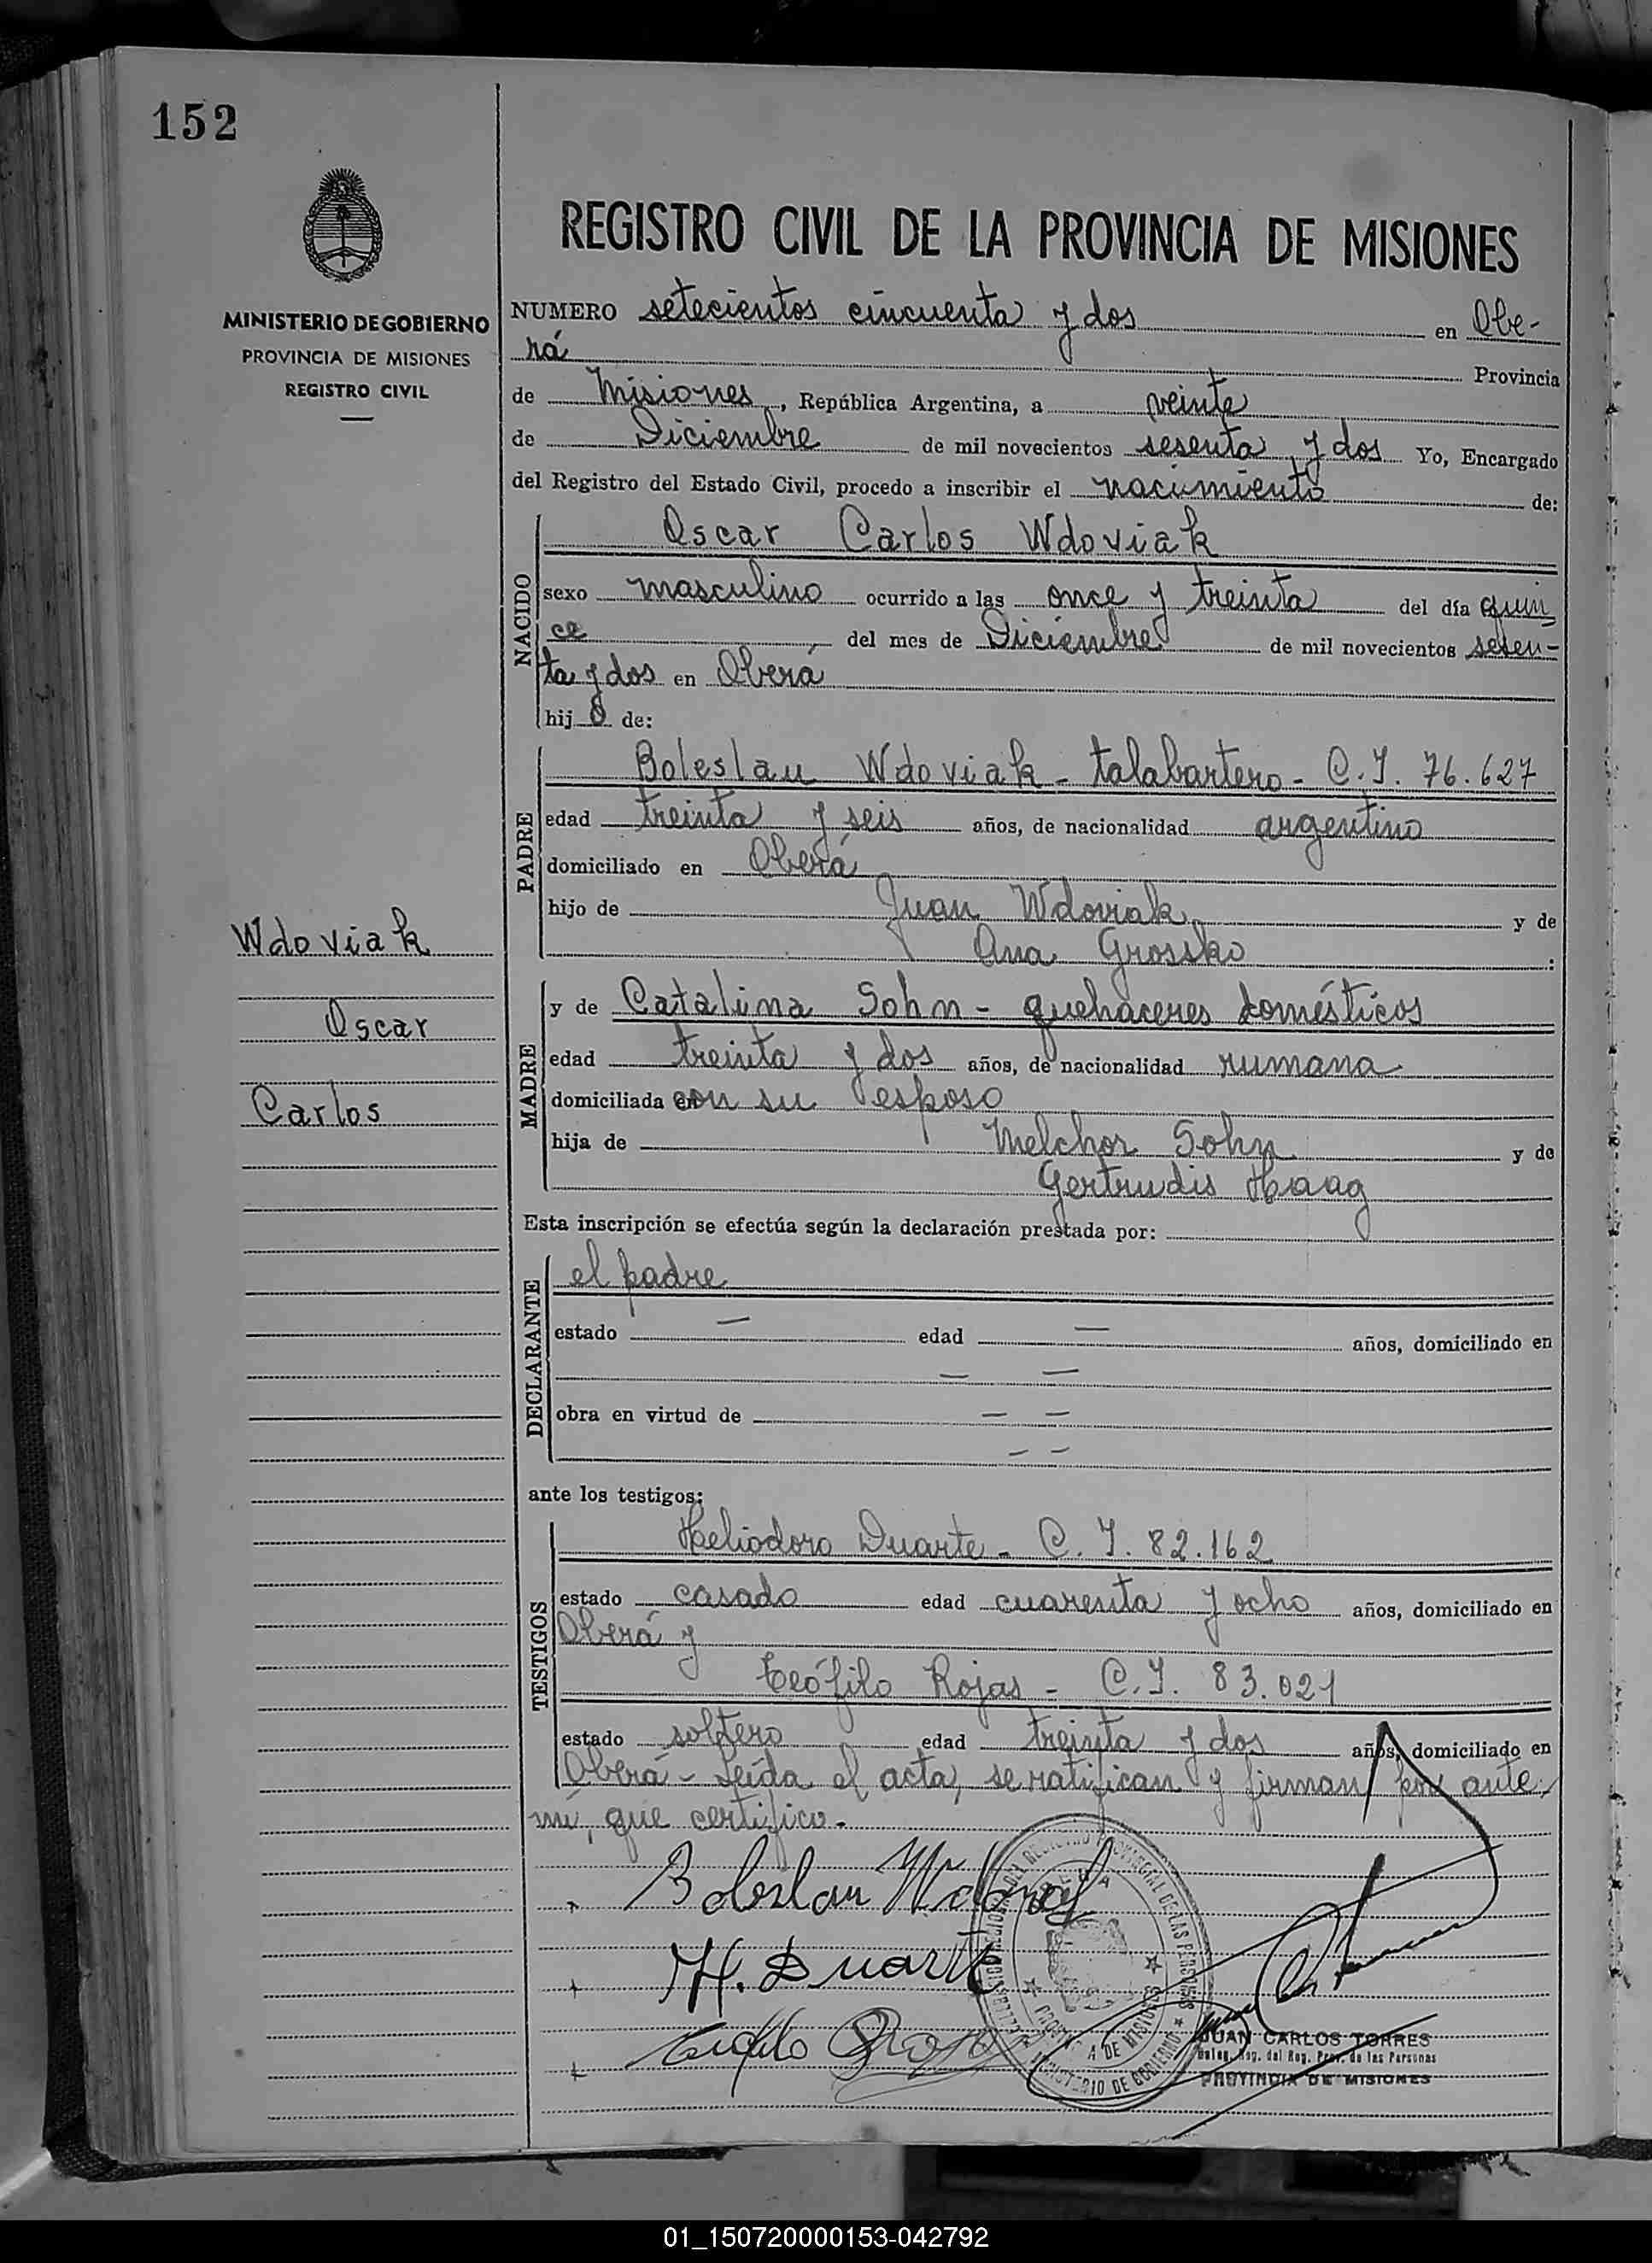 152
REGISTRO CIVIL DE LA PROVINCIA DE MISIONES
MINISTERIO DE GOBIERNO
PROVINCIA DE MISIONES
REGISTRO CIVIL
NUMERO setecientos cincuenta y dos en Obe-
rá Provincia
de Misiones, República Argentina, a veinte
de Diciembre de mil novecientos sesenta y dos Yo, Encargado
del Registro del Estado Civil, procedo a inscribir el nacimiento de:
NACIDO
Oscar Carlos Wdoviak
sexo masculino ocurrido a las once y treinta del día quin
ce del mes de Diciembre de mil novecientos sesen-
ta y dos en Oberá
hijo de:
PADRE
Boleslau Wdoviak - talabartero - C.I. 76.627
edad treinta y seis años, de nacionalidad argentino
domiciliado en Oberá
hijo de Juan Wdoviak y de
Ana Grossko :
Wdoviak
Oscar
Carlos
MADRE
y de Catalina Sohn - quehaceres domésticos
edad treinta y dos años, de nacionalidad rumana
domiciliada con su esposo
hija de Melchor Sohn y de
Gertrudis Haag
Esta inscripción se efectúa según la declaración prestada por:
DECLARANTE
el padre
estado — edad — años, domiciliado en
— —
obra en virtud de — —
— —
ante los testigos:
TESTIGOS
Heliodoro Duarte - C.I. 82.162
estado casado edad cuarenta y ocho años, domiciliado en
Oberá y
Teófilo Rojas - C.I. 83.021
estado soltero edad treinta y dos años, domiciliado en
Oberá - Leída el acta, se ratifican y firman por ante
mí, que certifico.-
Boleslau Wdoviak
H. Duarte
JUAN CARLOS TORRES
Deleg. Reg. del Reg. Prov. de las Personas
PROVINCIA DE MISIONES
01_150720000153-042792